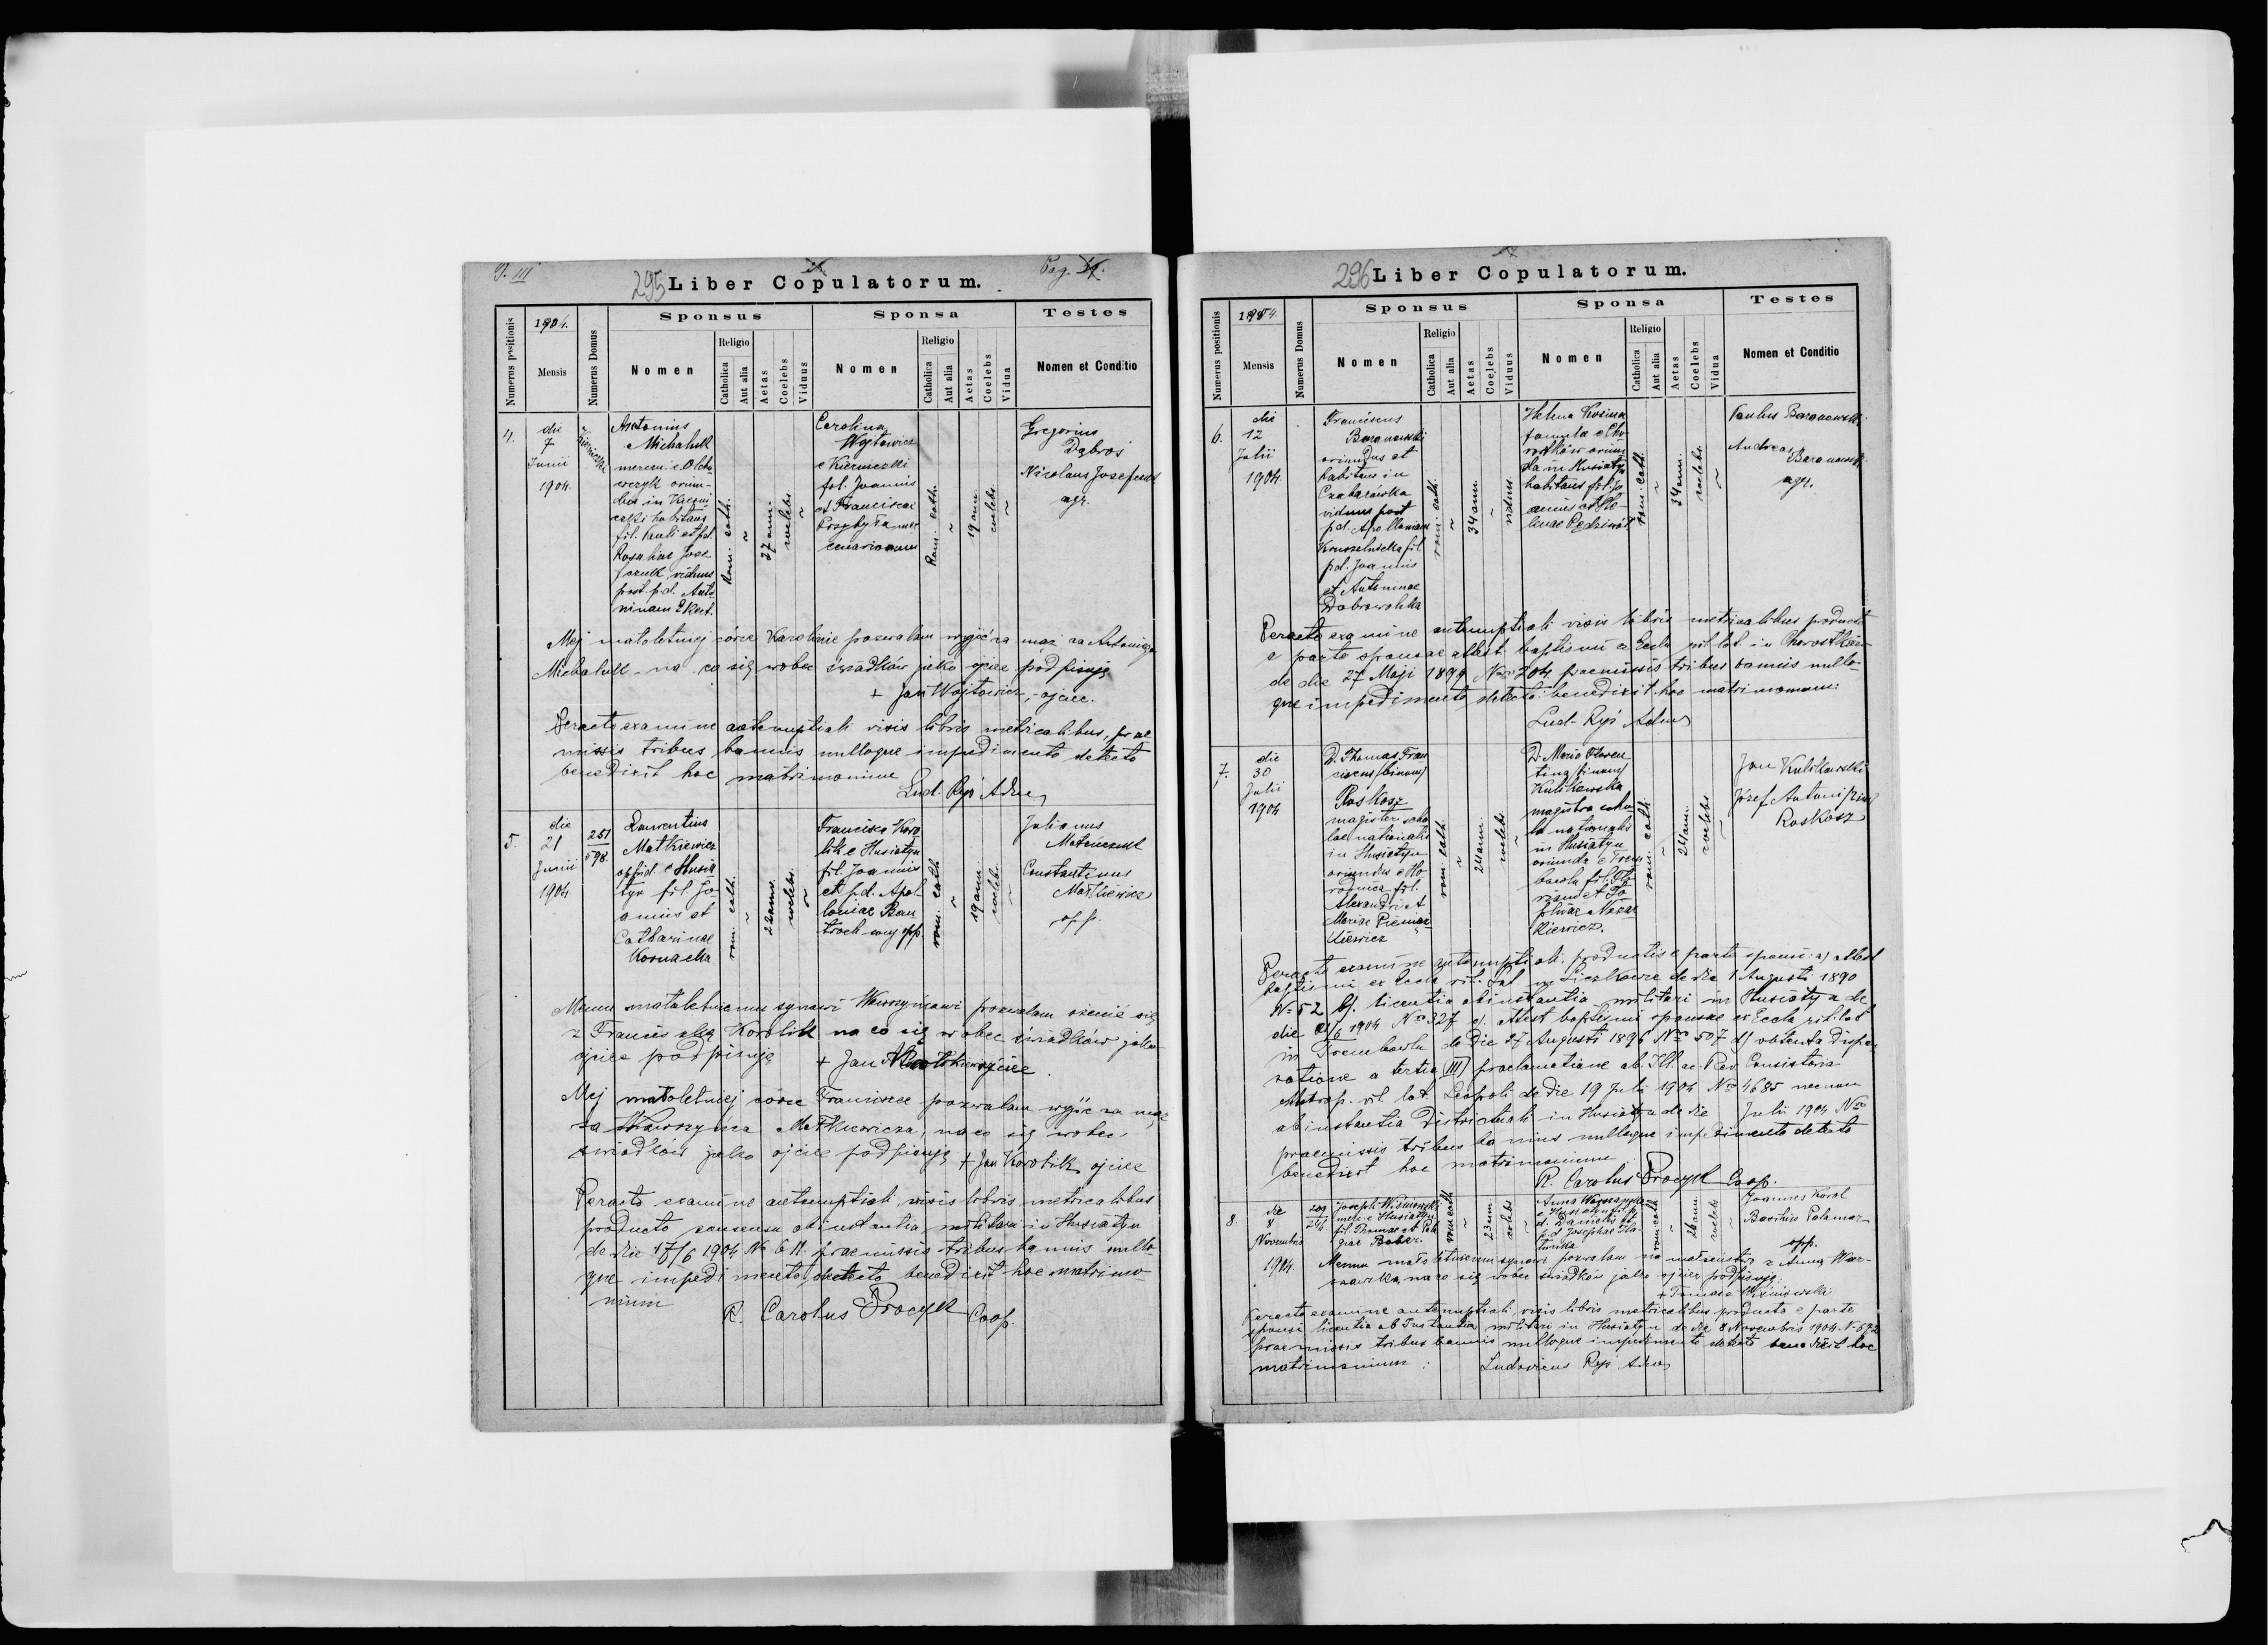 P. III
295 Liber Copulatorum.
Pag.
Numerus positionis
1904.
Mensis
Numerus Domus
Sponsus
Nomen
Religio
Catholica
Aut alia
Aetas
Coelebs
Viduus
Sponsa
Nomen
Religio
Catholica
Aut alia
Aetas
Coelebs
Vidua
Testes
Nomen et Conditio
4.
die
7
Junii
1904
Antonius
Michaluk
oriun-
dus in
habitans
fil. Pauli et p.d.
Rosaliae Joze
fczuk viduus
post p.d. Anto
ninam Ekert.
Rom. cath.
~
37 ann.
coelebs.
~
Carolina
Wojtowicz
e Kierniczki
fil. Joannis
et Franciscae
Przybyła
Rom. cath.
~
19 ann.
coelebs.
~
Gregorius
Dąbros
Nicolaus Josefczuk
agr.
Mej małoletniej córce Karolinie pozwalam wyjść za mąż za Antoniego
Michaluk na co się wobec świadków jako ojciec podpisuję
+ Jan Wojtowicz, ojciec.
Peracto examine antenuptiali visis libris metricalibus, prae
missis tribus bannis nulloque impedimento detecto
benedixit hoc matrimonium
Lud. Ryś Adm
5.
die
21
Junii
1904
251
598
Laurentius
Matkiewicz
oppid. e Husia
tyn fil. Jo-
annis et
Catharinae
Kornacka
rom. cath.
~
22 ann.
coelebs.
~
Francisca Koro
lik e Husiatyn
fil. Joannis
et p.d. Apol
loniae
rom. cath
~
19 ann.
coelebs.
~
Julianus
Constantinus
Matkiewicz
opp.
Memu małoletniemu synowi Wawrzyńcowi pozwalam ożenić się
z Franciszką Korolik na co się wobec świadków jako
ojciec podpisuję + Jan Matkiewicz ojciec
Mej małoletniej córce Franciszce pozwalam wyjść za mąż
za Wawrzyńca Matkiewicza, na co się wobec
świadków jako ojciec podpisuję + Jan Korolik ojciec
Peracto examine antenuptiali visis libris metricalibus
producto consensu ab instantia militari in Husiatyn
de die 17/6 1904 No 611 praemissis tribus bannis nullo-
que impedimento detecto benedixit hoc matrimo-
nium
R. Carolus Procyk Coop.
296 Liber Copulatorum.
Numerus positionis
1904.
Mensis
Numerus Domus
Sponsus
Nomen
Religio
Catholica
Aut alia
Aetas
Coelebs
Viduus
Sponsa
Nomen
Religio
Catholica
Aut alia
Aetas
Coelebs
Vidua
Testes
Nomen et Conditio
6.
die
12
Julii
1904
Franciscus
Baranowski
oriundus et
habitans in
Czabarówka
viduus post
p.d. Apolloniam
Kruszelnicka fil.
p.d. Joannis
et Antoninae
Dobrowolska
rom. cath.
~
34 ann.
~
viduus.
Helena Kosina
famula e Cho-
rostków oriun
da in Husiatyn
habitans fil. Jo
annis et He-
lenae
rom. cath.
~
34 ann.
coelebs.
~
Paulus Baranowski
Andreas
Baranowski
agr.
Peracto examine antenuptiali visis libris metricalibus producto
e parte sponsae attest. baptismi ex Eccla rit. lat. in Chorostków
de die 27 Maji 1899 Nro 204 praemissis tribus bannis nullo-
que impedimento detecto benedixit hoc matrimonium:
Lud. Ryś Adm
7.
die
30
Julii
1904
D. Thomas Fran
ciscus (binom)
Roskosz
magister scho
lae nationalis
in Husiatyn
oriundus e Ho-
rodnica fil.
Alexandri et
Mariae Pieniąż
kiewicz
rom. cath.
~
24 ann.
coelebs
~
D. Maria Floren
tina (binom)
Kulikowska
magistra scho
lae nationalis
in Husiatyn
oriunda e Trem
bowla fil. Flo
riani et Jo
sephae Nazar
kiewicz.
rom. cath.
~
24 ann.
coelebs.
~
Jan Kulikowski
Józef Antoni
Roskosz
Peracto examine antenuptiali productis e parte sponsi: a) attest
baptismi ex Eccla rit. lat. in Liczkowce de die 1 Augusti 1890
No 52 b). licentia ab instantia militari in Husiatyn de
die 21/6 1904 No 327 c). attest baptismi sponsae ex Eccla rit. lat
in Trembowla de die 27 Augusti 1896 Nro 507 d) obtenta dispen
satione a tertia (III) proclamatione ab Ill. ac Rev. Consistorio
Metrop. rit. lat. Leopoli de die 19 Julii 1904 No 4685 necnon
ab instantia Districtuali in Husiatyn de die Julii 1904 Nro
praemissis tribus bannis nulloque impedimento detecto
benedixit hoc matrimonium
R. Carolus Procyk Coop.
8
die
8
Novembris
1904.
209
Joseph Wiśniowski
e Husiatyn
fil. Thomae et Pela
giae Bober.
rom cath
~
23 ann.
coelebs
~
Anna Warszawska
e Husiatyn fil. p.
d. Danielis et
p.d. Josephae
rom. cath
~
26 ann.
coelebs
~
Joannes Karol
Basilius Palamar-
opp.
Memu małoletniemu synowi pozwalam na małżeństwo z Anną War-
szawską na co się wobec świadków jako ojciec podpisuję:
+ Tomasz Wiśniowski
Peracto examine antenuptiali, visis libris metricalibus producta e parte
sponsi licentia ab Instantia militari in Husiatyn de die 8 Novembris 1904 No 692
praemissis tribus bannis nulloque impedimento detecto benedixit hoc
matrimonium: Ludovicus Ryś Adm